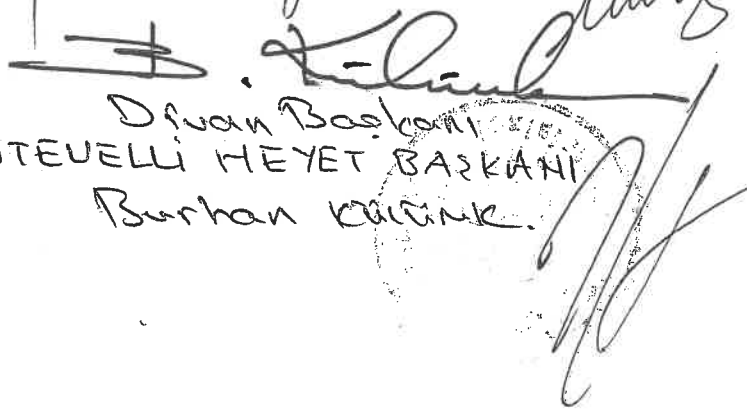 Divan Başkanı
TEVELLİ HEYET BAŞKANI
Burhan